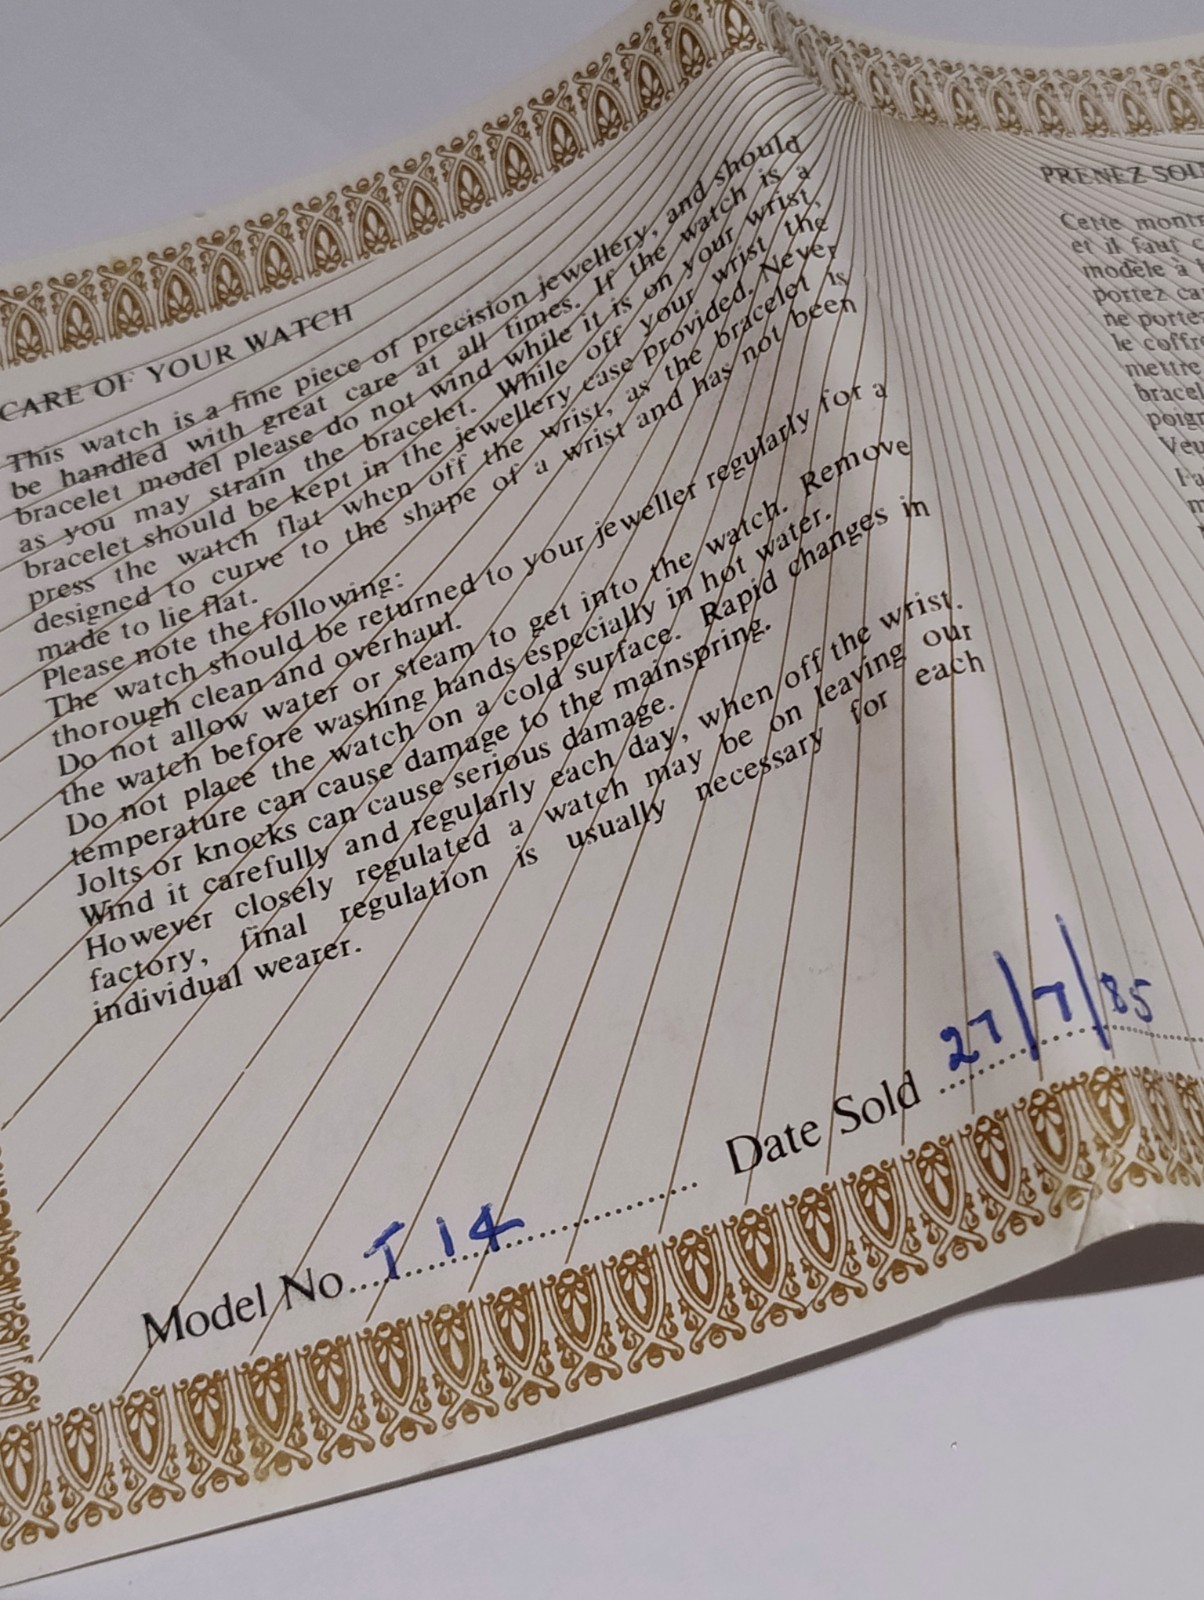 CARE OF YOUR WATCH
This watch is a fine piece of precision jewellery, and should
be handled with great care at all times. If the watch is a
bracelet model please do not wind while it is on your wrist,
as you may strain the bracelet. While off your wrist the
bracelet should be kept in the jewellery case provided. Never
press the watch flat when off the wrist, as the bracelet is
designed to curve to the shape of a wrist and has not been
made to lie flat.
Please note the following:
The watch should be returned to your jeweller regularly for a
thorough clean and overhaul.
Do not allow water or steam to get into the watch. Remove
the watch before washing hands especially in hot water.
Do not place the watch on a cold surface. Rapid changes in
temperature can cause damage to the mainspring.
Jolts or knocks can cause serious damage.
Wind it carefully and regularly each day, when off the wrist.
However closely regulated a watch may be on leaving our
factory, final regulation is usually necessary for each
individual wearer.
Model No. T14 Date Sold 27/7/85
PRENEZ
Cette
et il faut
modèle à
portez
ne portez
le coffre
mettre